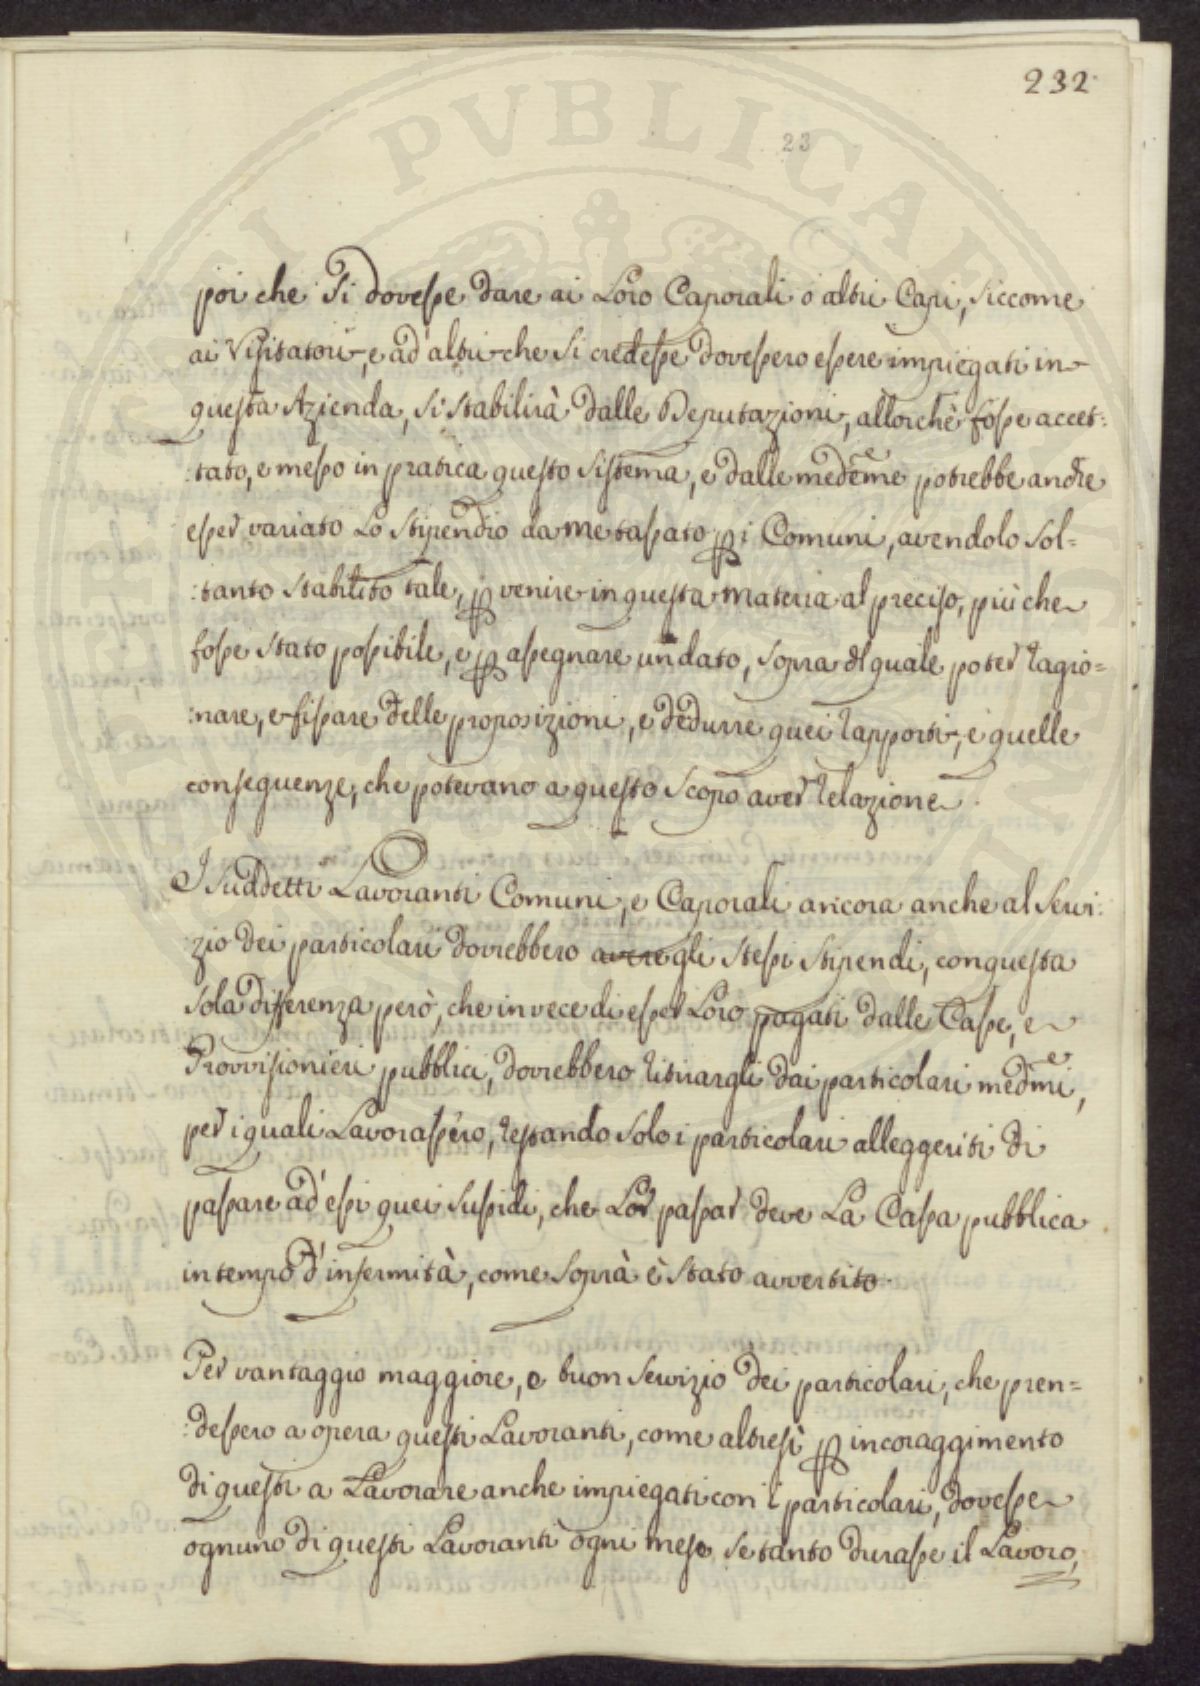 232
23
poi che Si dovesse dare ai Loro Caporali o altri Capi, Siccome
ai Visitatori, e ad altri che Si credesse dovessero essere impiegati in
questa Azienda, Si Stabilirà dalle Deputazioni, allorchè fosse accet:
:tato, e messo in pratica questo Sistema, e dalle medẽme potrebbe anche
esser variato Lo Stipendio da me tassato p̱ i Comuni, avendolo Sol=
:tanto Stabilito tale, p̱ venire in questa materia al preciso, più che
fosse Stato possibile, e p̱ assegnare un dato, Sopra al quale poter ragio=
:nare, e fissare delle proposizioni, e dedurre quei rapporti, e quelle
conseguenze, che potevano a questo Scopo aver relazione.
I Suddetti Lavoranti Comuni, e Caporali ancora anche al Servi:
:zio dei particolari dovrebbero avere gli Stessi Stipendi, con questa
Sola differenza però, che invece di esser Loro pagati dalle Casse, e
Provvisionieri pubblici, dovrebbero ritirargli dai particolari medm̃i,
per i quali Lavorassero, restando Solo i particolari alleggeriti di
passare ad essi quei Sussidi, che Lor passar deve La Cassa pubblica
in tempo d'infermità, come Soprà è Stato avvertito.
Per vantaggio maggiore, e buon Servizio dei particolari, che pren=
:dessero a opera questi Lavoranti, come altresì p̱ incoraggimento
di questi a Lavorare anche impiegati con i particolari, dovesse
ognuno di questi Lavoranti ogni mese, Se tanto durasse il Lavoro,